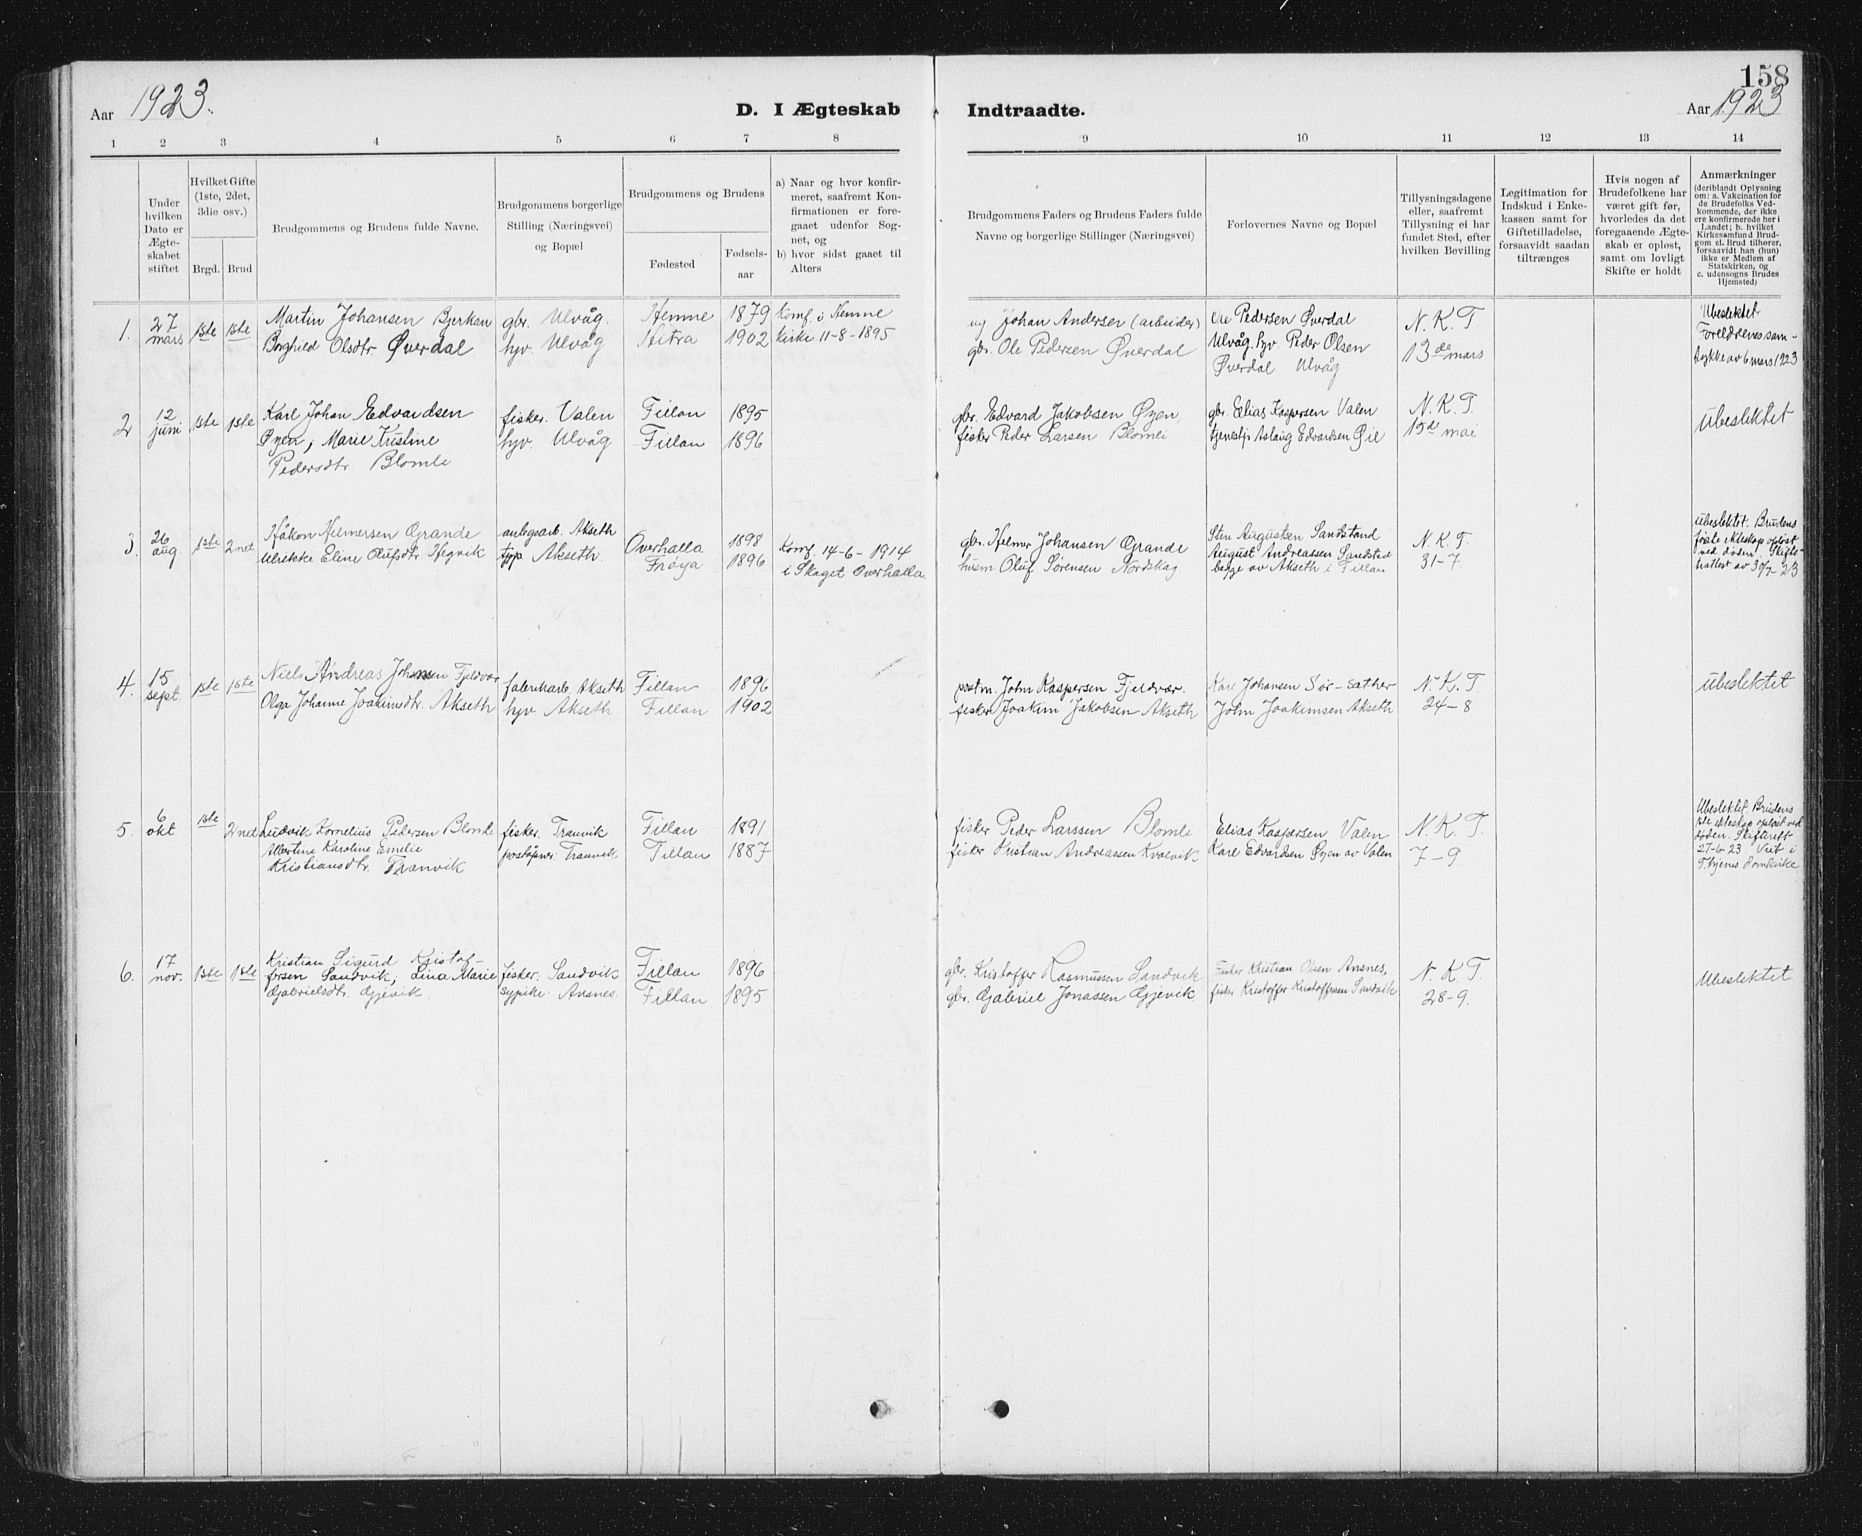 158
Aar 1923.
D. I Ægteskab
Indtraadte.
Aar 1923
1 2 3 3 4 5 6 7 8 9 10 11 12 13 14
Under hvilken Dato er Ægteskabet stiftet
Hvilket Gifte (1ste, 2det, 3die osv.)
Brgd. Brud
Brudgommens og Brudens fulde Navne.
Brudgommens borgerlige Stilling (Næringsvei) og Bopæl
Brudgommens og Brudens
Fødested
Fødselsaar
a) Naar og hvor konfirmeret, saafremt Konfirmationen er foregaaet udenfor Sognet, og
b) hvor sidst gaaet til Alters
Brudgommens Faders og Brudens Faders fulde Navne og borgerlige Stillinger (Næringsvei)
Forlovernes Navne og Bopæl
Tillysningsdagene eller, saafremt Tillysning ei har fundet Sted, efter hvilken Bevilling
Legitimation for Indskud i Enkekassen samt for Giftetilladelse, forsaavidt saadan tiltrænges
Hvis nogen af Brudefolkene har været gift før, hvorledes da det foregaaende Ægteskab er opløst, samt om lovligt Skifte er holdt
Anmærkninger
(deriblandt Oplysning om: a. Vakcination for de Brudefolks Vedkommende, der ikke ere konfirmerede her i Landet; b. hvilket Kirkesamfund Brudgom el. Brud tilhører, forsaavidt han (hun) ikke er Medlem af Statskirken, og c. udensogns Brudes Hjemsted)
1. 27 mars 1ste 1ste
Martin Johansen Bjerkan
Borghild Olsdtr Øverdal
gbr. Ulvåg.
hjv Ulvåg
Hemne 1879
Hitra 1902
Komf. i Hemne
Kirke 11-8-1895
ug Johan Andersen (arbeider)
gbr. Ole Pedersen Øverdal
Ole Pedersen Øverdal
Ulvåg. hjv. Peder Olsen
Øverdal Ulvåg
N. K. T
13de mars
Ubeslektet
Foreldrenes sam-
tykke av 6 mars 1923
2 12 juni 1ste 1ste
Karl Johan Edvardsen
Øyen, Marie Kristine
Pedersdtr. Blomli
fisker. Valen
hjv. Ulvåg
Fillan 1895
Fillan 1896
gbr. Edvard Jakobsen Øyen,
fisker Peder Larsen Blomli
gbr. Elias Kaspersen Valen
tjenestp. Aslaug Edvardsen Øie
N. K. T.
15de mai
Ubeslektet
3. 26 aug 1ste 2net
Håkon Hilmersen Grande
Ulrikke Eline Olufsdtr. Hegvik
anlegsarb. Akseth
Akseth.
Overhalla 1898
Frøya 1896
Komf. 14-6-1914
i Skaget Overhalla.
gbr. Hilmer Johansen Grande
husm Oluf Sørensen Nordskag
Sten Augustsen Sandstad
August Andreassen Sandstad
begge av Akseth i Fillan
N. K. T.
31-7
Ubeslektet. Brudens
første ekteskap opløst
ved døden. Skifte-
hattest av 30/7-23
4. 15 sept 1ste 1ste
Niels Andreas Johnsen Fjeldvær
Olga Johanne Joakimsdtr. Akseth
fabrikarb. Akseth
hjv Akseth
Fillan 1896
Fillan 1902
postm. John Kaspersen Fjeldvær.
fisker Joakim Jakobsen Akseth
Kare Johansen Sør-Sather
John Joakimsen Akseth
N. K. T.
24-8
Ubeslektet
5. 6 okt 1ste 2net
Ludvik Kornelius Pedersen Blomli
Albertine Karoline Emelie
Kristiansdtr. Tranvik
fisker. Tranvik
Tranvik
Fillan 1891
Fillan 1887
fisker Peder Larssen Blomli
fisker Kristian Andreassen Kvalvik
Elias Kaspersen Valen
Karl Edvardsen Øyen av Valen
N. K. T.
7-9.
Ubeslektet. Brudens
1ste ekteskap opløst ved
døden. Skifterett
27-6-23.
6. 17 nov. 1ste 1ste
Kristian Sigurd Kristof-
fersen Sandvik, Lina Marie
Gabrielsdtr. Gjevik.
fisker. Sandvik
sypike. Ansnes.
Fillan 1896
Fillan 1895
gbr. Kristoffer Rasmussen Sandvik
gbr. Gabriel Jonassen Gjevik
Fisker Kristian Olsen Ansnes,
fisk. Kristoffer Kristoffersen Sandvik
N. K. T
28-9.
Ubeslektet